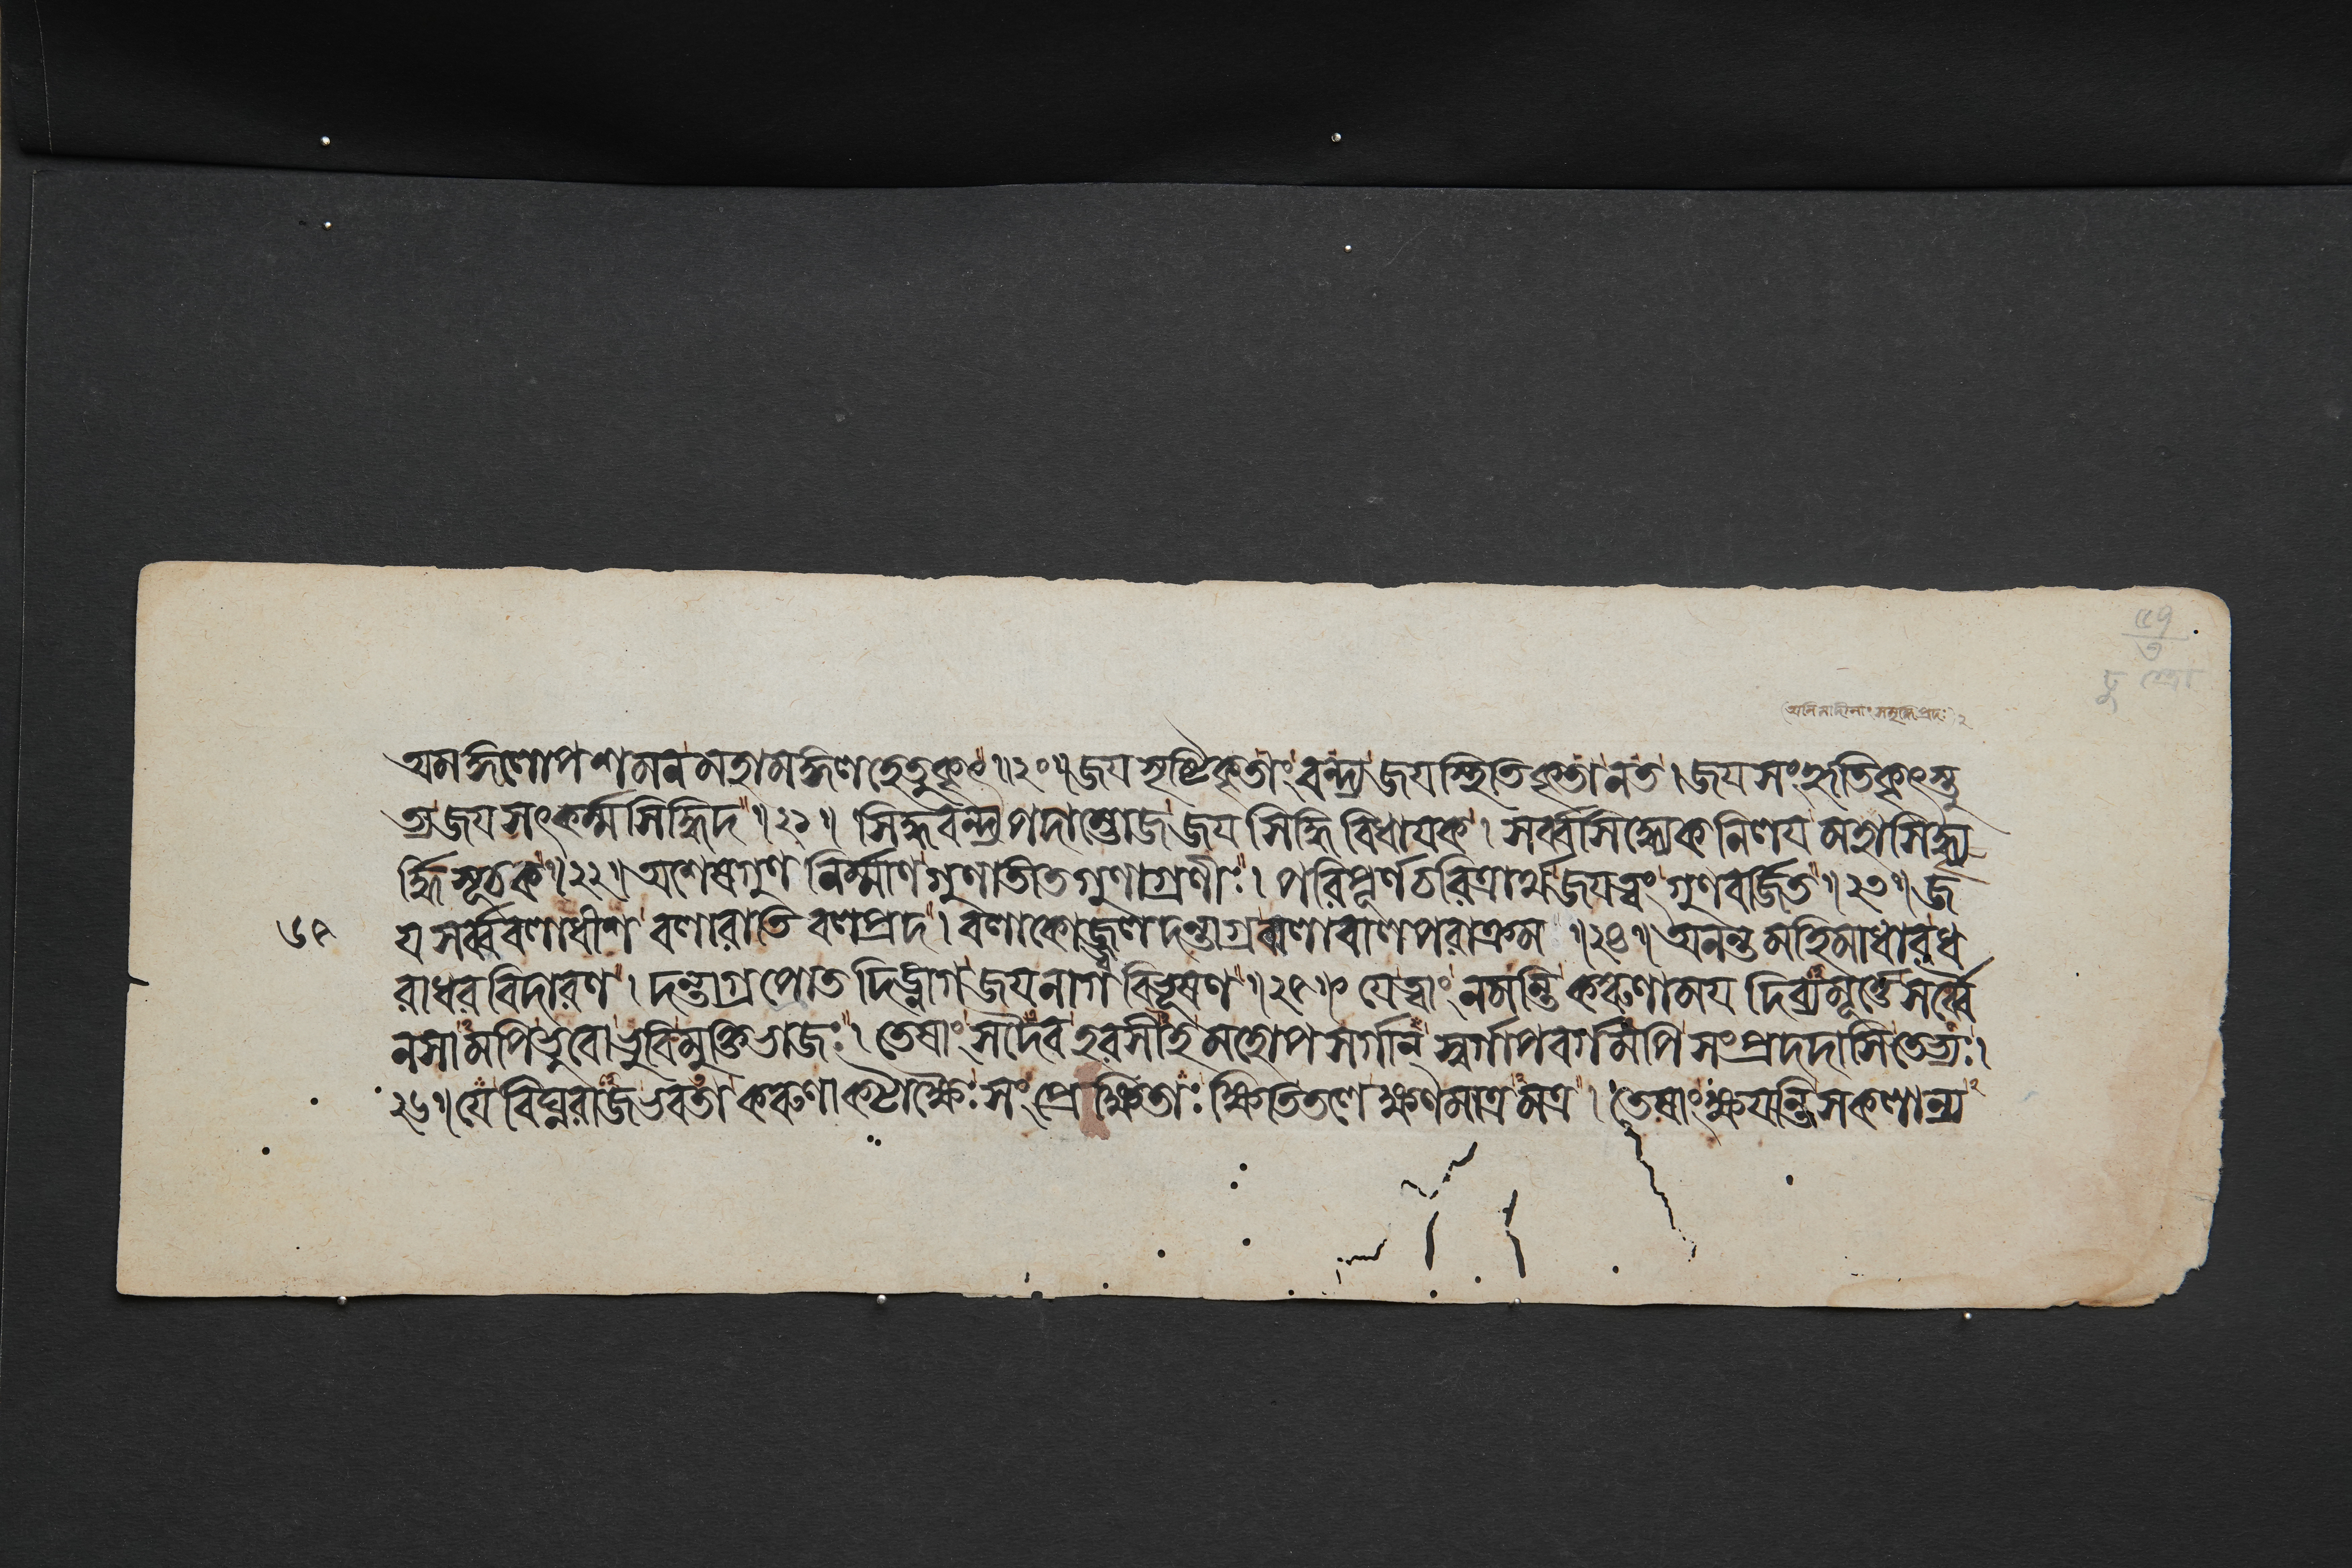 (অনিমাদীনাং সমৃদ্ধিপ্রদঃ) ২
অমঙ্গলোপশমন মহামঙ্গলহেতুকৃৎ ॥ ২০ ॥ জয় সৃষ্টিকৃতাং বন্দ্য জয় স্থিতিকৃতানত । জয় সংহৃতিকৃৎস্তু
ত্য জয় সৎকর্ম্মসিদ্ধিদ ॥ ২১ ॥ সিদ্ধবন্দ্য পদাম্ভোজ জয় সিদ্ধিবিধায়ক । সর্ব্বসিদ্ধ্যেক নিলয় মহাসিদ্ধ্যৃ
র্দ্ধি সূচক ॥ ২২ ॥ অশেষগুণ নির্ম্মাণ গুণাতীত গুণাগ্রণীঃ । পরিপূর্ণচরিত্রার্থ জয়ত্বং গুণবর্জিত ॥ ২৩ ॥ জ
৬৫ য় সর্ব্ববলাধীশ বলারাতি বলপ্রদ । বলাকোজ্জ্বলদন্তাগ্র বালাবালপরাক্রম ॥ ২৪ ॥ অনন্ত মহিমাধার ধ
রাধর বিদারণ । দন্তাগ্র প্রোত দিঙ্নাগ জয় নাগ বিভূষণ ॥ ২৫ ॥ যে ত্বাং নমন্তি করুণাময় দিব্যমূর্ত্তে সর্ব্বৈ
নসামপি ভুবো ভুবি মুক্তিভাজঃ । তেষাং সদৈব হরসীহ মহোপসর্গান্ স্বর্গাপবর্গমপি সংপ্রদদাসি তেভ্যঃ ।
২৬ ॥ যে বিঘ্নরাজ ভবতা করুণা কটাক্ষৈঃ সংপ্রেক্ষিতাঃ ক্ষিতিতলে ক্ষণমাত্রমত্র । তেষাং ক্ষয়ন্তি সকলান্য